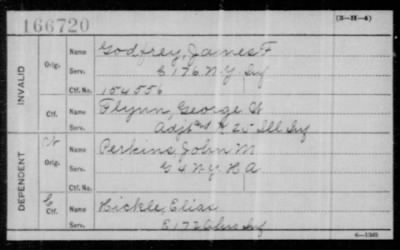 166720
(3-31-4)
INVALID
Orig.
Name Godfrey, James F
Serv. E 176 N.Y. Inf
Ctf. No. 154556
Ctf.
Name Flynn, George H
Serv. Adjt 25 Ill Inf
DEPENDENT
W
Orig.
Name Perkins, John M
Serv. G 4 N.Y. H A
Ctf. No.
Ctf.
Name Bickle, Elias
Serv. E 172 Ohio Inf